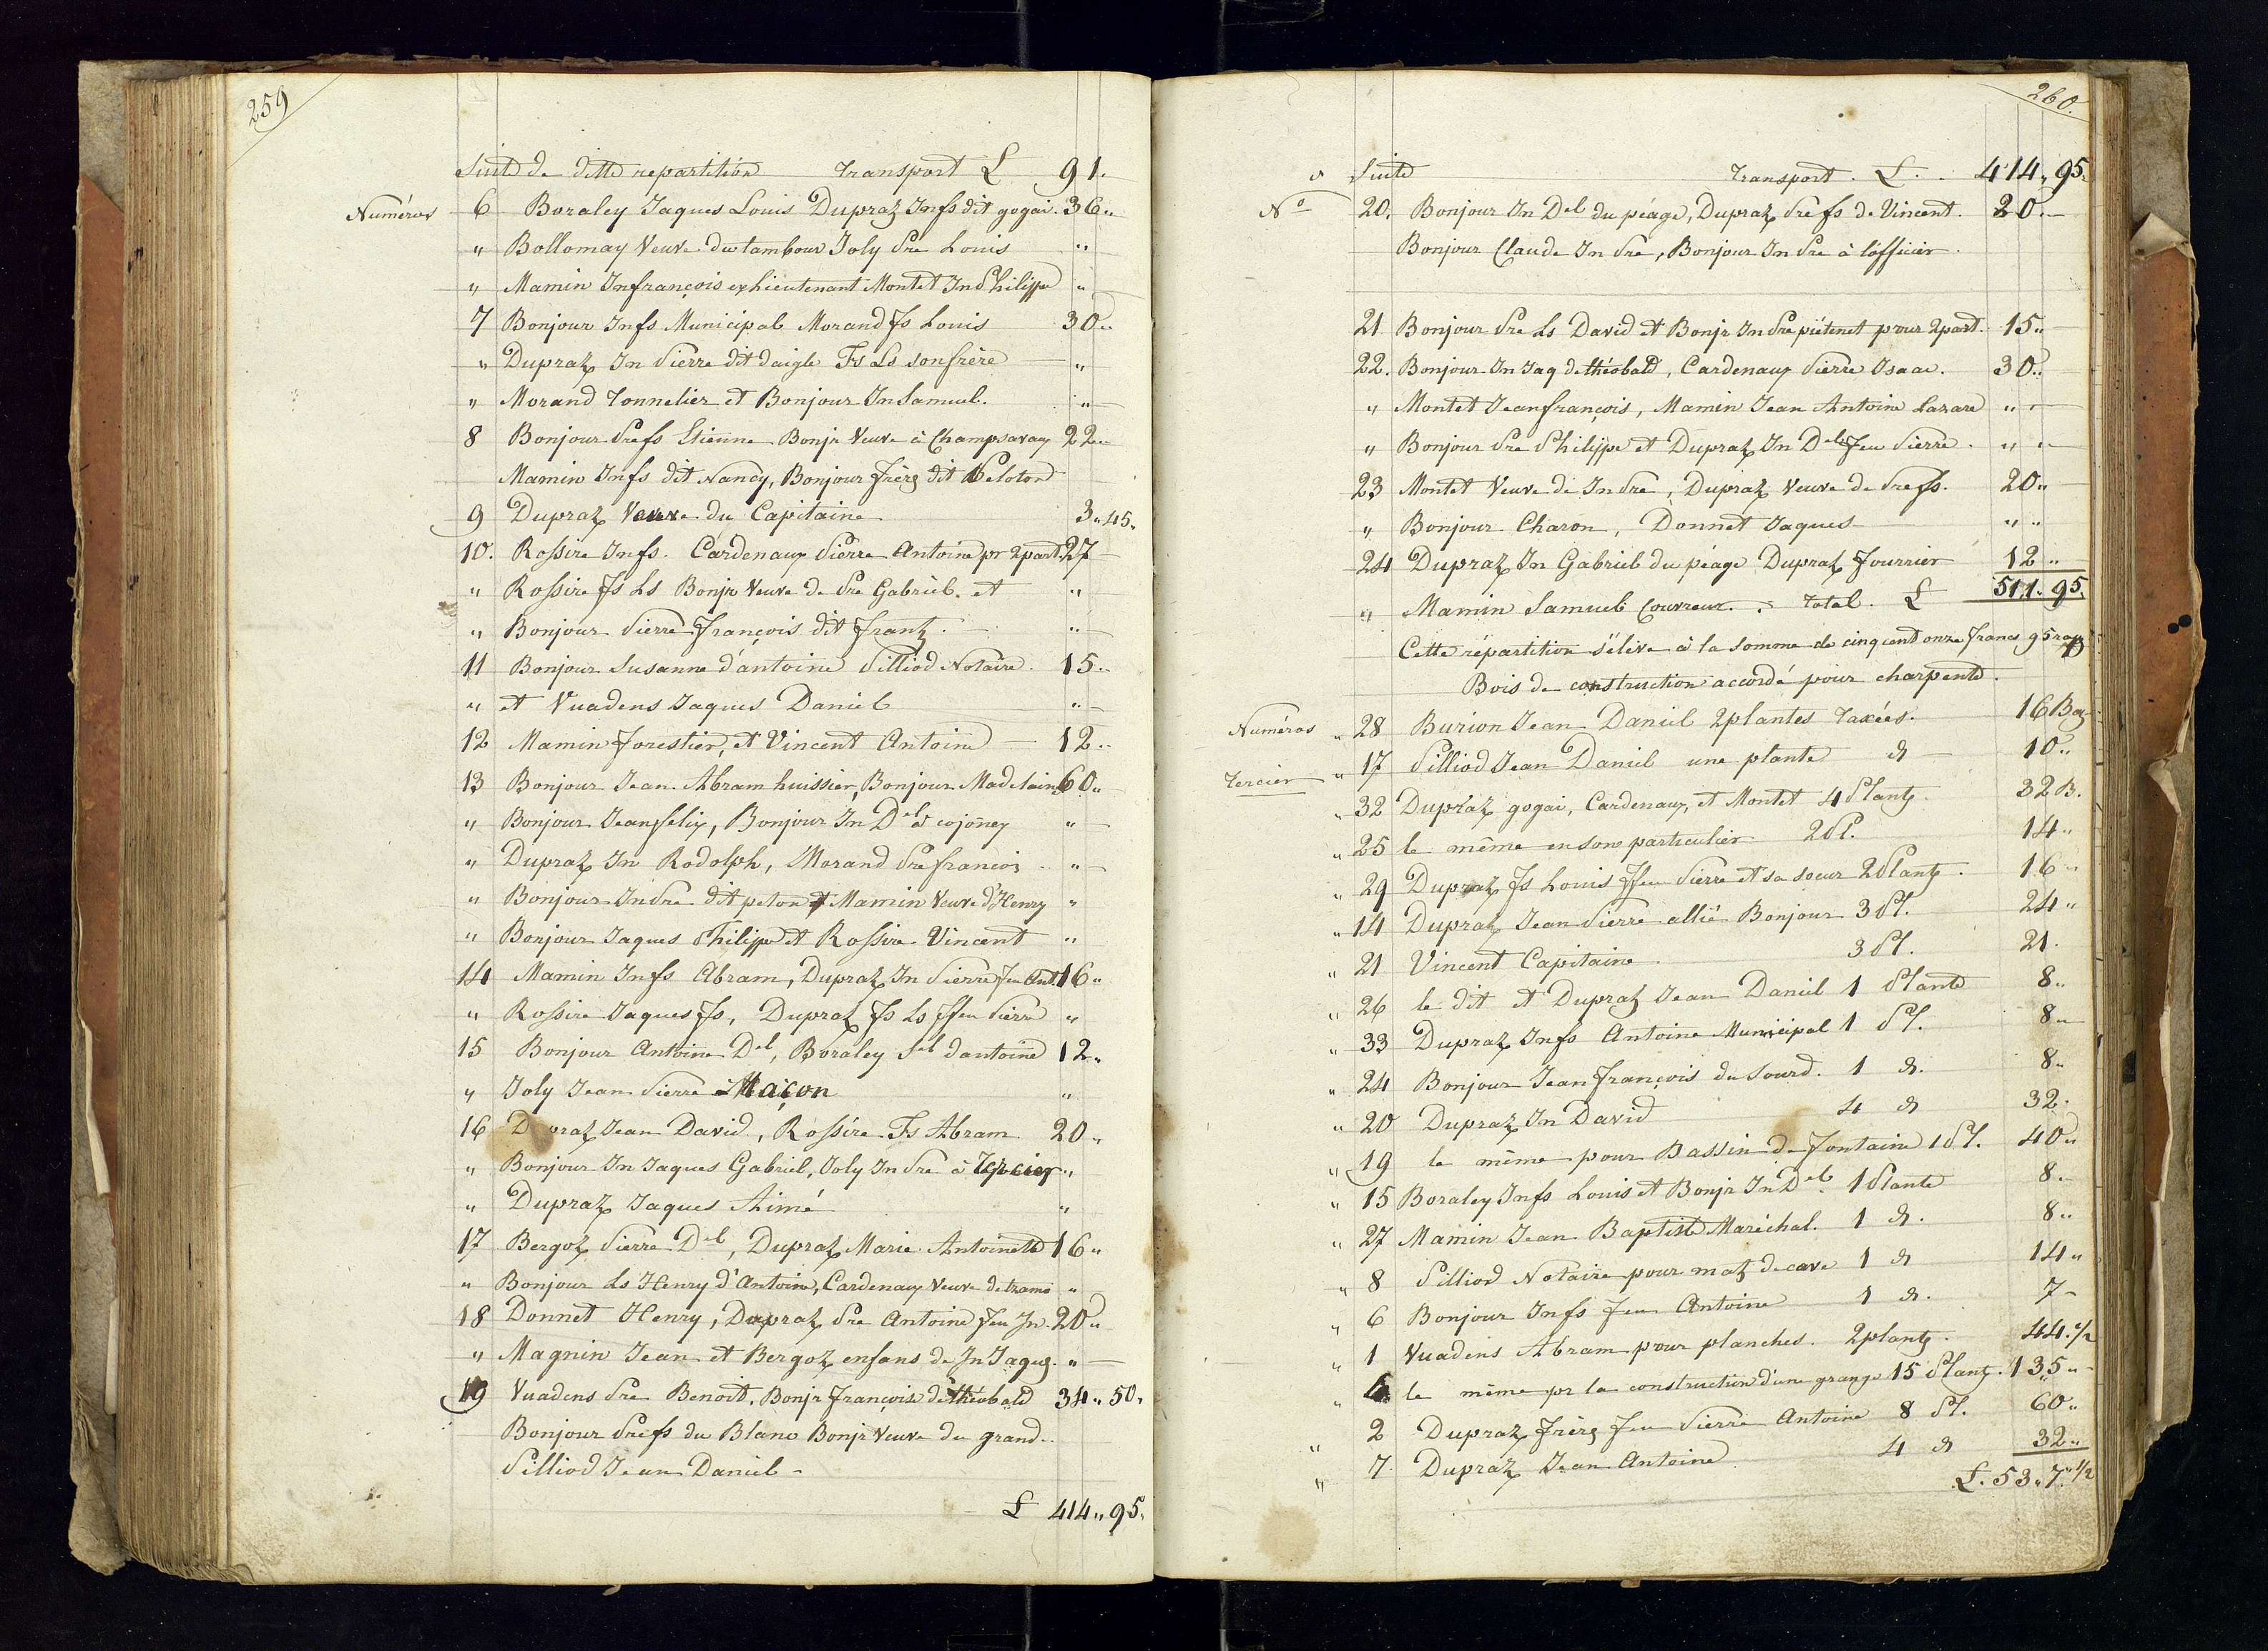 259
Suite de ditte repartition Transport L 91.
Numéros 6 Boraley Jaques Louis Dupraz Jnfs dit gogai. 36 "
" Bollomay Veuve du tambour Joly Pre Louis "
" Mamin Jnfrançois exlieutenant Montet Jn Philippe "
7 Bonjour Jnfs Municipal Morand fs Louis 30 "
" Dupraz Jn Pierre dit daigle Fs Ls son frère "
" Morand Tonnelier et Bonjour Jn Samuel. "
8 Bonjour Prefs Etienne Bonjr Veuve à Champsavay 22 "
Mamin Jnfs dit Nancy, Bonjour frèrs dit Peloton
9 Dupraz Veuve du Capitaine 3 " 45 "
10. Rossire Jnfs. Cardenaux Pierre Antoine pr 2 part. 27
" Rossire fs Ls Bonjr Veuve de Pre Gabriel. et "
" Bonjour Pierre françois dit frantz. "
11 Bonjour Susanne d'antoine Pilliod Notaire. 15 "
" et Vuadens Jaques Daniel "
12 Mamin forestier, et Vincent Antoine 12 "
13 Bonjour Jean Abram huissier, Bonjour Madelaine 60 "
" Bonjour Jeanfelix, Bonjour Jn Del à cojoney "
" Dupraz Jn Rodolph, Morand Pre francois "
" Bonjour Jn Pre dit peton et Mamin Veuve d'Henry "
" Bonjour Jaques Philippe et Rossire Vincent "
14 Mamin Jnfs Abram, Dupraz Jn Pierre feu Ant. 16 "
" Rossire Jaques fs, Dupraz fs Ls ffeu Pierre "
15 Bonjour Antoine Del, Boraley Sel dantoine 12 "
" Joly Jean Pierre Maiçon "
16 Dupraz Jean David, Rossire Fs Abram 20 "
" Bonjour Jn Jaques Gabriel, Joly Jn Pre à Tercier "
" Dupraz Jaques Aimé "
17 Bergoz Pierre Del, Dupraz Marie Antoinette 16 "
" Bonjour Ls Henry d'Antoine, Cardenaux Veuve de tramo "
18 Donnet Henry, Dupraz Pre Antoine feu Jn. 20 "
" Magnin Jean et Bergoz enfans de Jn Jaqug. "
19 Vuadens Pre Benoit. Bonjr françoise de théobald 34 " 50 "
Bonjour Prefs du Blanc Bonjr Veuve du grand.
Pilliod Jean Daniel
L 414 " 95 "
260.
Suite Transport. L. 414 " 95 "
No 20. Bonjour Jn Del du péage, Dupraz Prefs de Vincent. 20.
Bonjour Claude Jn Pre, Bonjour Jn Pre à lofficier
21 Bonjour Pre Ls David et Bonjr Jn Pre piétenet pour 2 part. 15 "
22. Bonjour Jn Jaq de théobald, Cardenaux Pierre Isaac. 30 "
" Montet Jeanfrançois, Mamin Jean Antoine Lazare " "
" Bonjour Pre Philippe et Dupraz Jn Del feu Pierre. " "
23 Montet Veuve de Jn Pre, Dupraz Veuve de Prefs. 20 "
" Bonjour Charon, Donnet Jaques " "
24 Dupraz Jn Gabriel du péage Dupraz fourrier 12 "
" Mamin Samuel Couvreur. Total. L 511. 95.
Cette répartition s'élève à la somme de cinq cent onze francs 95 rapp
Bois de construction accordé pour charpente.
Numéros " 28 Burion Jean Daniel 2 plantes Taxées. 16 Bz
Tercier " 17 Pilliod Jean Daniel une plante d 10 "
" 32 Dupraz gogai, Cardenaux, et Montet 4 Plantg. 32 B.
" 25 le même en son particulier 2 Pl. 14 "
" 29 Dupraz fs Louis ffeu Pierre et sa soeur 2 Plantg. 16 "
" 14 Dupraz Jean Pierre allié Bonjour 3 Pl. 24 "
" 21 Vincent Capitaine. 3 Pl. 21.
" 26 le dit et Dupraz Jean Daniel 1 Plante 8 "
" 33 Dupraz Jnfs Antoine Municipal 1 Pl. 8 "
" 24 Bonjour Jean françois du Sourd. 1 d. 8 "
" 20 Dupraz Jn David 4 d 32.
" 19 le même pour Bassin de fontaine 1 Pl. 40 "
" 15 Boraley Jnfs Louis et Bonjr Jn Del 1 Plante 8.
" 27 Mamin Jean Baptiste Maréchal. 1 d. 8 "
" 8 Pilliod Notaire pour matz de cave 1 d 14 "
" 6 Bonjour Jnfs feu Antoine 1 d. 7
" 1 Vuadens Abram pour planches. 2 plantg. 44. 1/2
" le même pr la construction d'une grange 15 Plantg. 135 "
" 2 Dupraz frèrs feu Pierre Antoine 8 Pl. 60 "
" 7. Dupraz Jean Antoine 4 d 32 "
L. 53 " 7 " 1/2